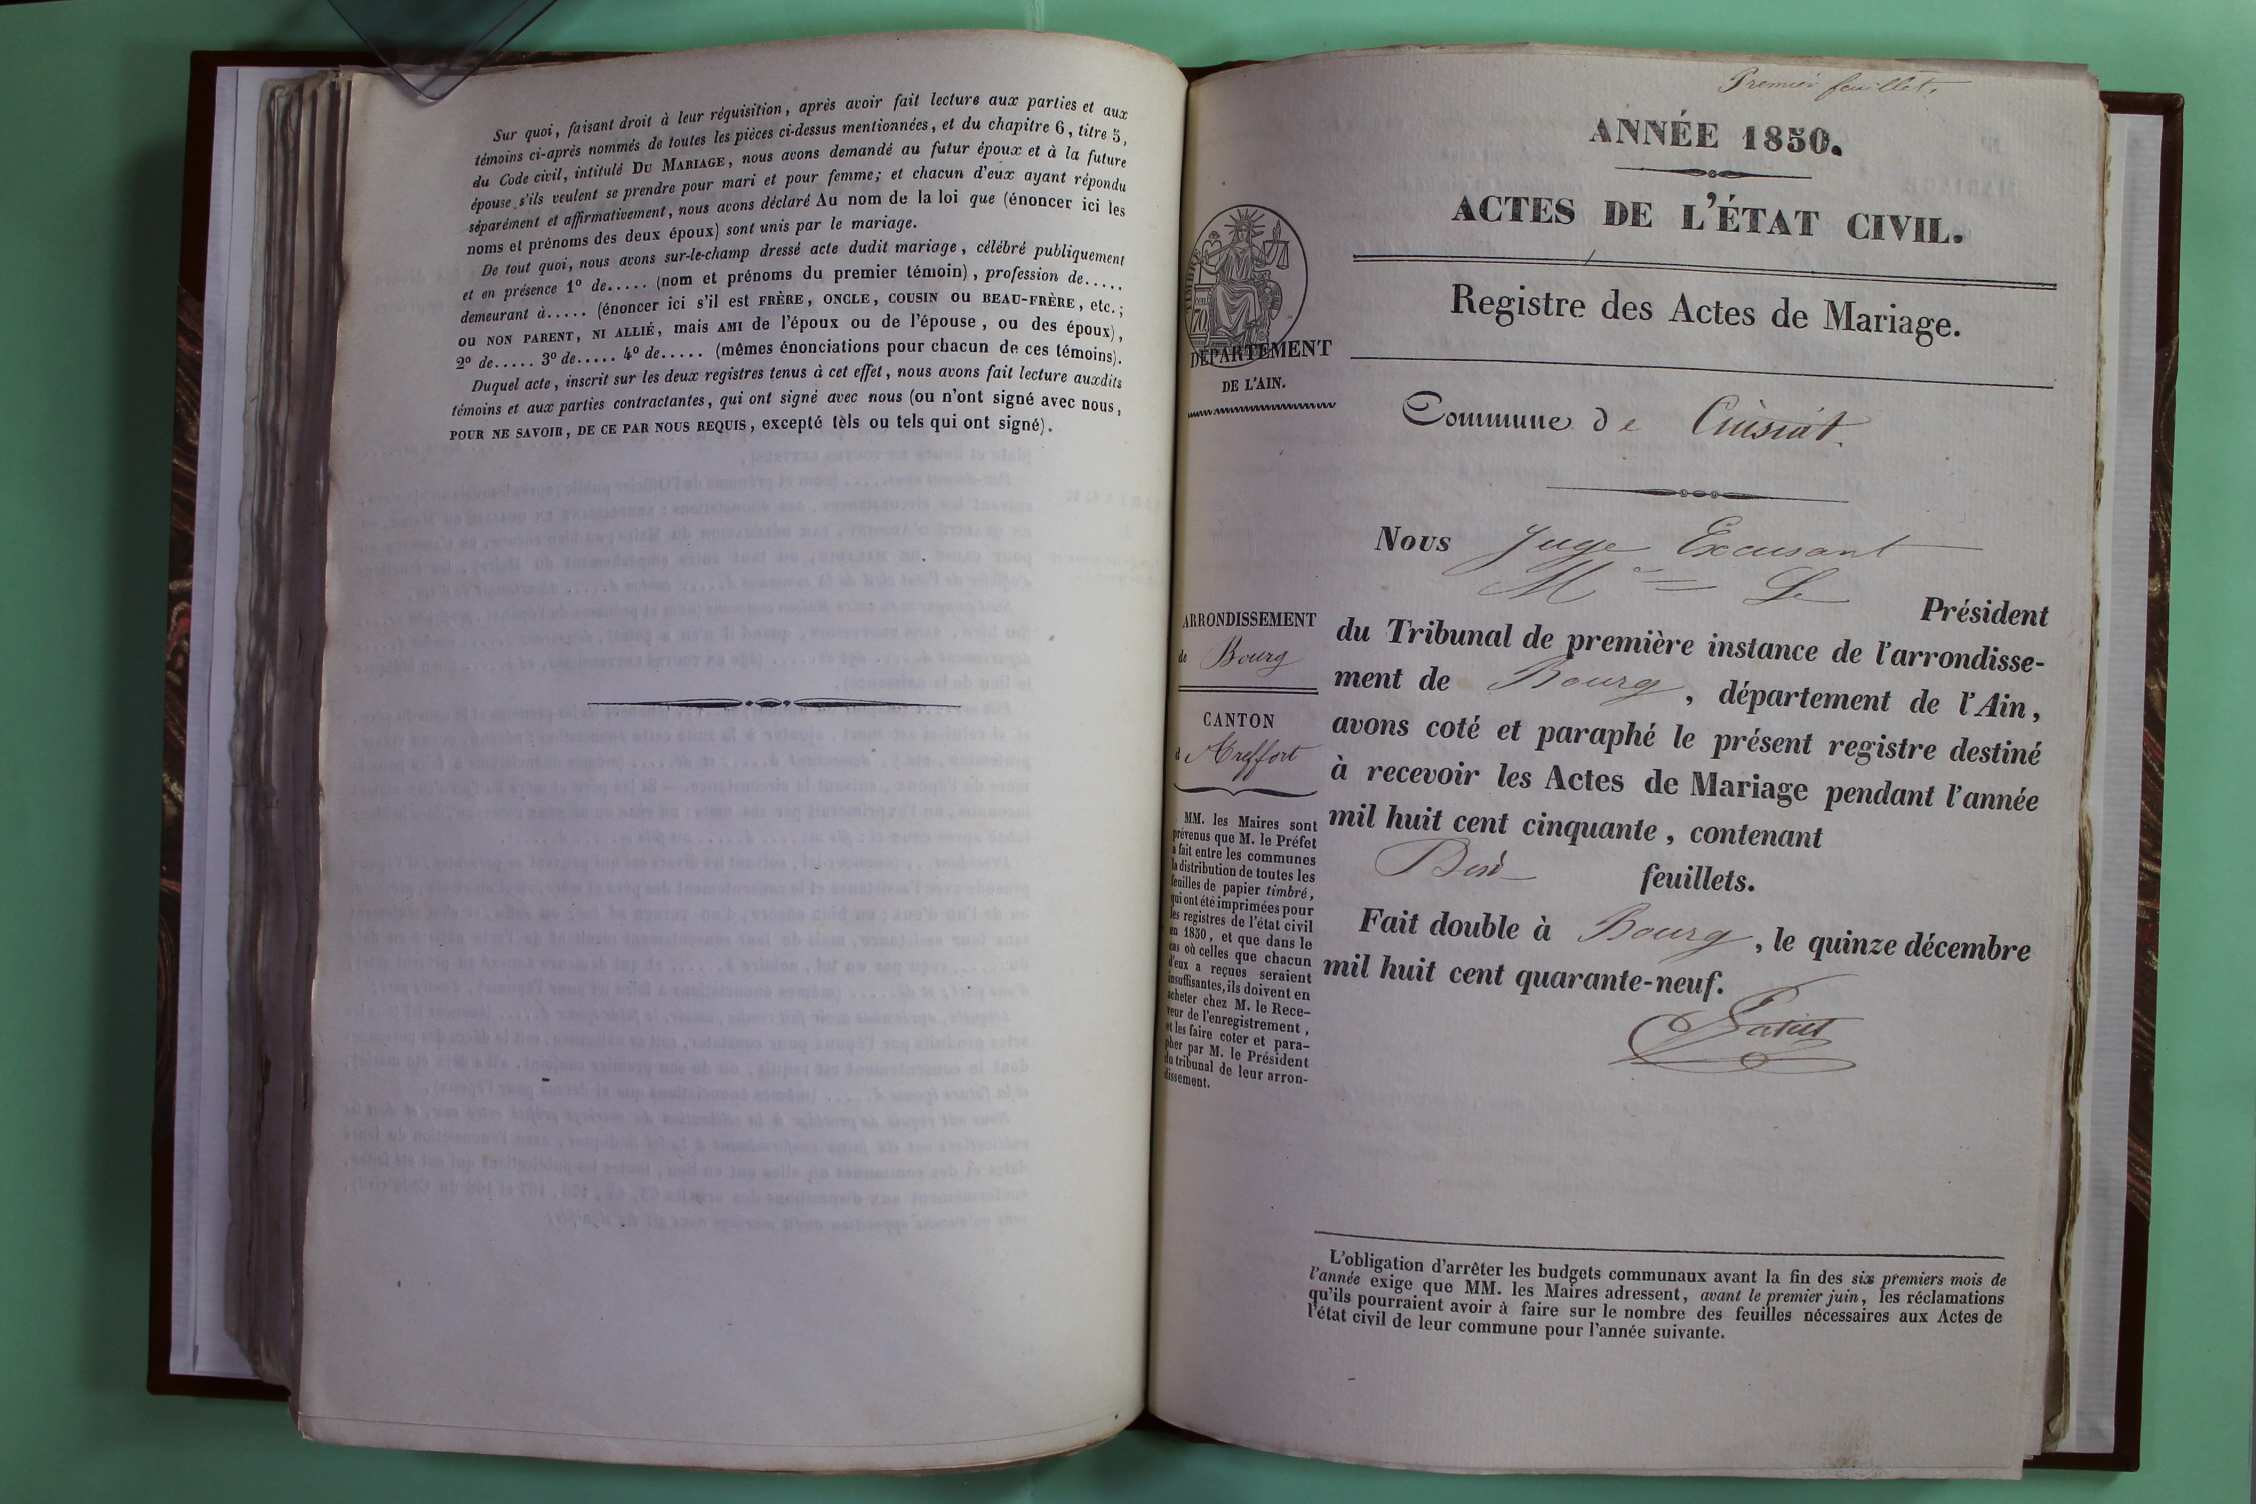 Sur quoi, faisant droit à leur réquisition, après avoir fait lecture aux parties et aux
témoins ci-après nommés de toutes les pièces ci-dessus mentionnées, et du chapitre 6, titre 5,
du Code civil, intitulé DU MARIAGE, nous avons demandé au futur époux et à la future
épouse s'ils veulent se prendre pour mari et pour femme; et chacun d'eux ayant répondu
séparément et affirmativement, nous avons déclaré Au nom de la loi que (énoncer ici les
noms et prénoms des deux époux) sont unis par le mariage.
De tout quoi, nous avons sur-le-champ dressé acte dudit mariage, célébré publiquement
et en présence 1º de..... (nom et prénoms du premier témoin), profession de.....
demeurant à..... (énoncer ici s'il est FRÈRE, ONCLE, COUSIN OU BEAU-FRÈRE, etc.;
OU NON PARENT, NI ALLIÉ, mais AMI de l'époux ou de l'épouse, ou des époux),
2º de..... 3º de..... 4º de..... (mêmes énonciations pour chacun de ces témoins).
Duquel acte, inscrit sur les deux registres tenus à cet effet, nous avons fait lecture auxdits
témoins et aux parties contractantes, qui ont signé avec nous (ou n'ont signé avec nous,
POUR NE SAVOIR, DE CE PAR NOUS REQUIS, excepté tels ou tels qui ont signé).
Premier feuillet.
ANNÉE 1850.
ACTES DE L'ÉTAT CIVIL.
Registre des Actes de Mariage.
DÉPARTEMENT
DE L'AIN.
Commune de Cuisiat.
Nous Juge Excusant
M Le
Président
du Tribunal de première instance de l'arrondisse-
ment de Bourg, département de l'Ain,
avons coté et paraphé le présent registre destiné
à recevoir les Actes de Mariage pendant l'année
mil huit cent cinquante, contenant
feuillets.
Fait double à Bourg, le quinze décembre
mil huit cent quarante-neuf.
ARRONDISSEMENT
de Bourg
CANTON
d Treffort
MM. les Maires sont
prévenus que M. le Préfet
a fait entre les communes
la distribution de toutes les
feuilles de papier timbré,
qui ont été imprimées pour
les registres de l'état civil
en 1850, et que dans le
cas où celles que chacun
d'eux a reçues seraient
insuffisantes, ils doivent en
acheter chez M. le Rece-
veur de l'enregistrement,
et les faire coter et para-
pher par M. le Président
du tribunal de leur arron-
dissement.
L'obligation d'arrêter les budgets communaux avant la fin des six premiers mois de
l'année exige que MM. les Maires adressent, avant le premier juin, les réclamations
qu'ils pourraient avoir à faire sur le nombre des feuilles nécessaires aux Actes de
l'état civil de leur commune pour l'année suivante.